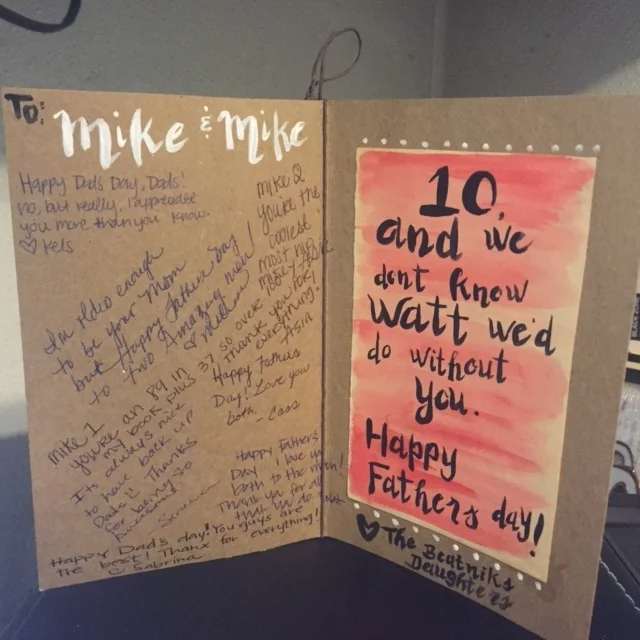 To:
Mike & Mike
Happy Dads Day, Dads!
no, but really, I appreciate
you more than you know.
♡ Kels
I'm older enough
to be your Mom
but Happy Fathers Day!
to two Amazing men!
Mike 2
you're the
coolest
most
thank you for
everything!
Asia
Mike 1
you're an 89 in
my book plus
Its always nice
to have back up
Dads!! Thanks
for being so
Happy Fathers
Day! Love you
both. - Cass
Happy Fathers
Day. I love you
both to the moon!
Thank you for all
that you do
Happy Dad's day! You guys are
the best! Thanx for everything!
Sabrina
10,
and we
dont know
watt we'd
do without
you.
Happy
Fathers day!
♥ The Beatniks
Daughters